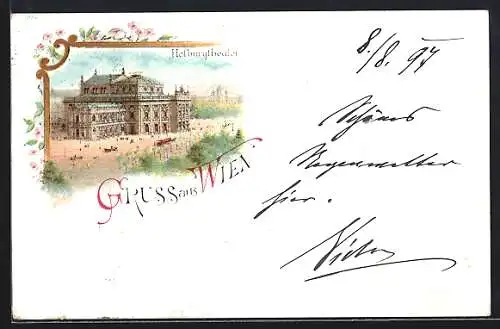 Hofburgtheater
GRUSS aus WIEN
8./8. 97
Schönes
Regenwetter
hier.